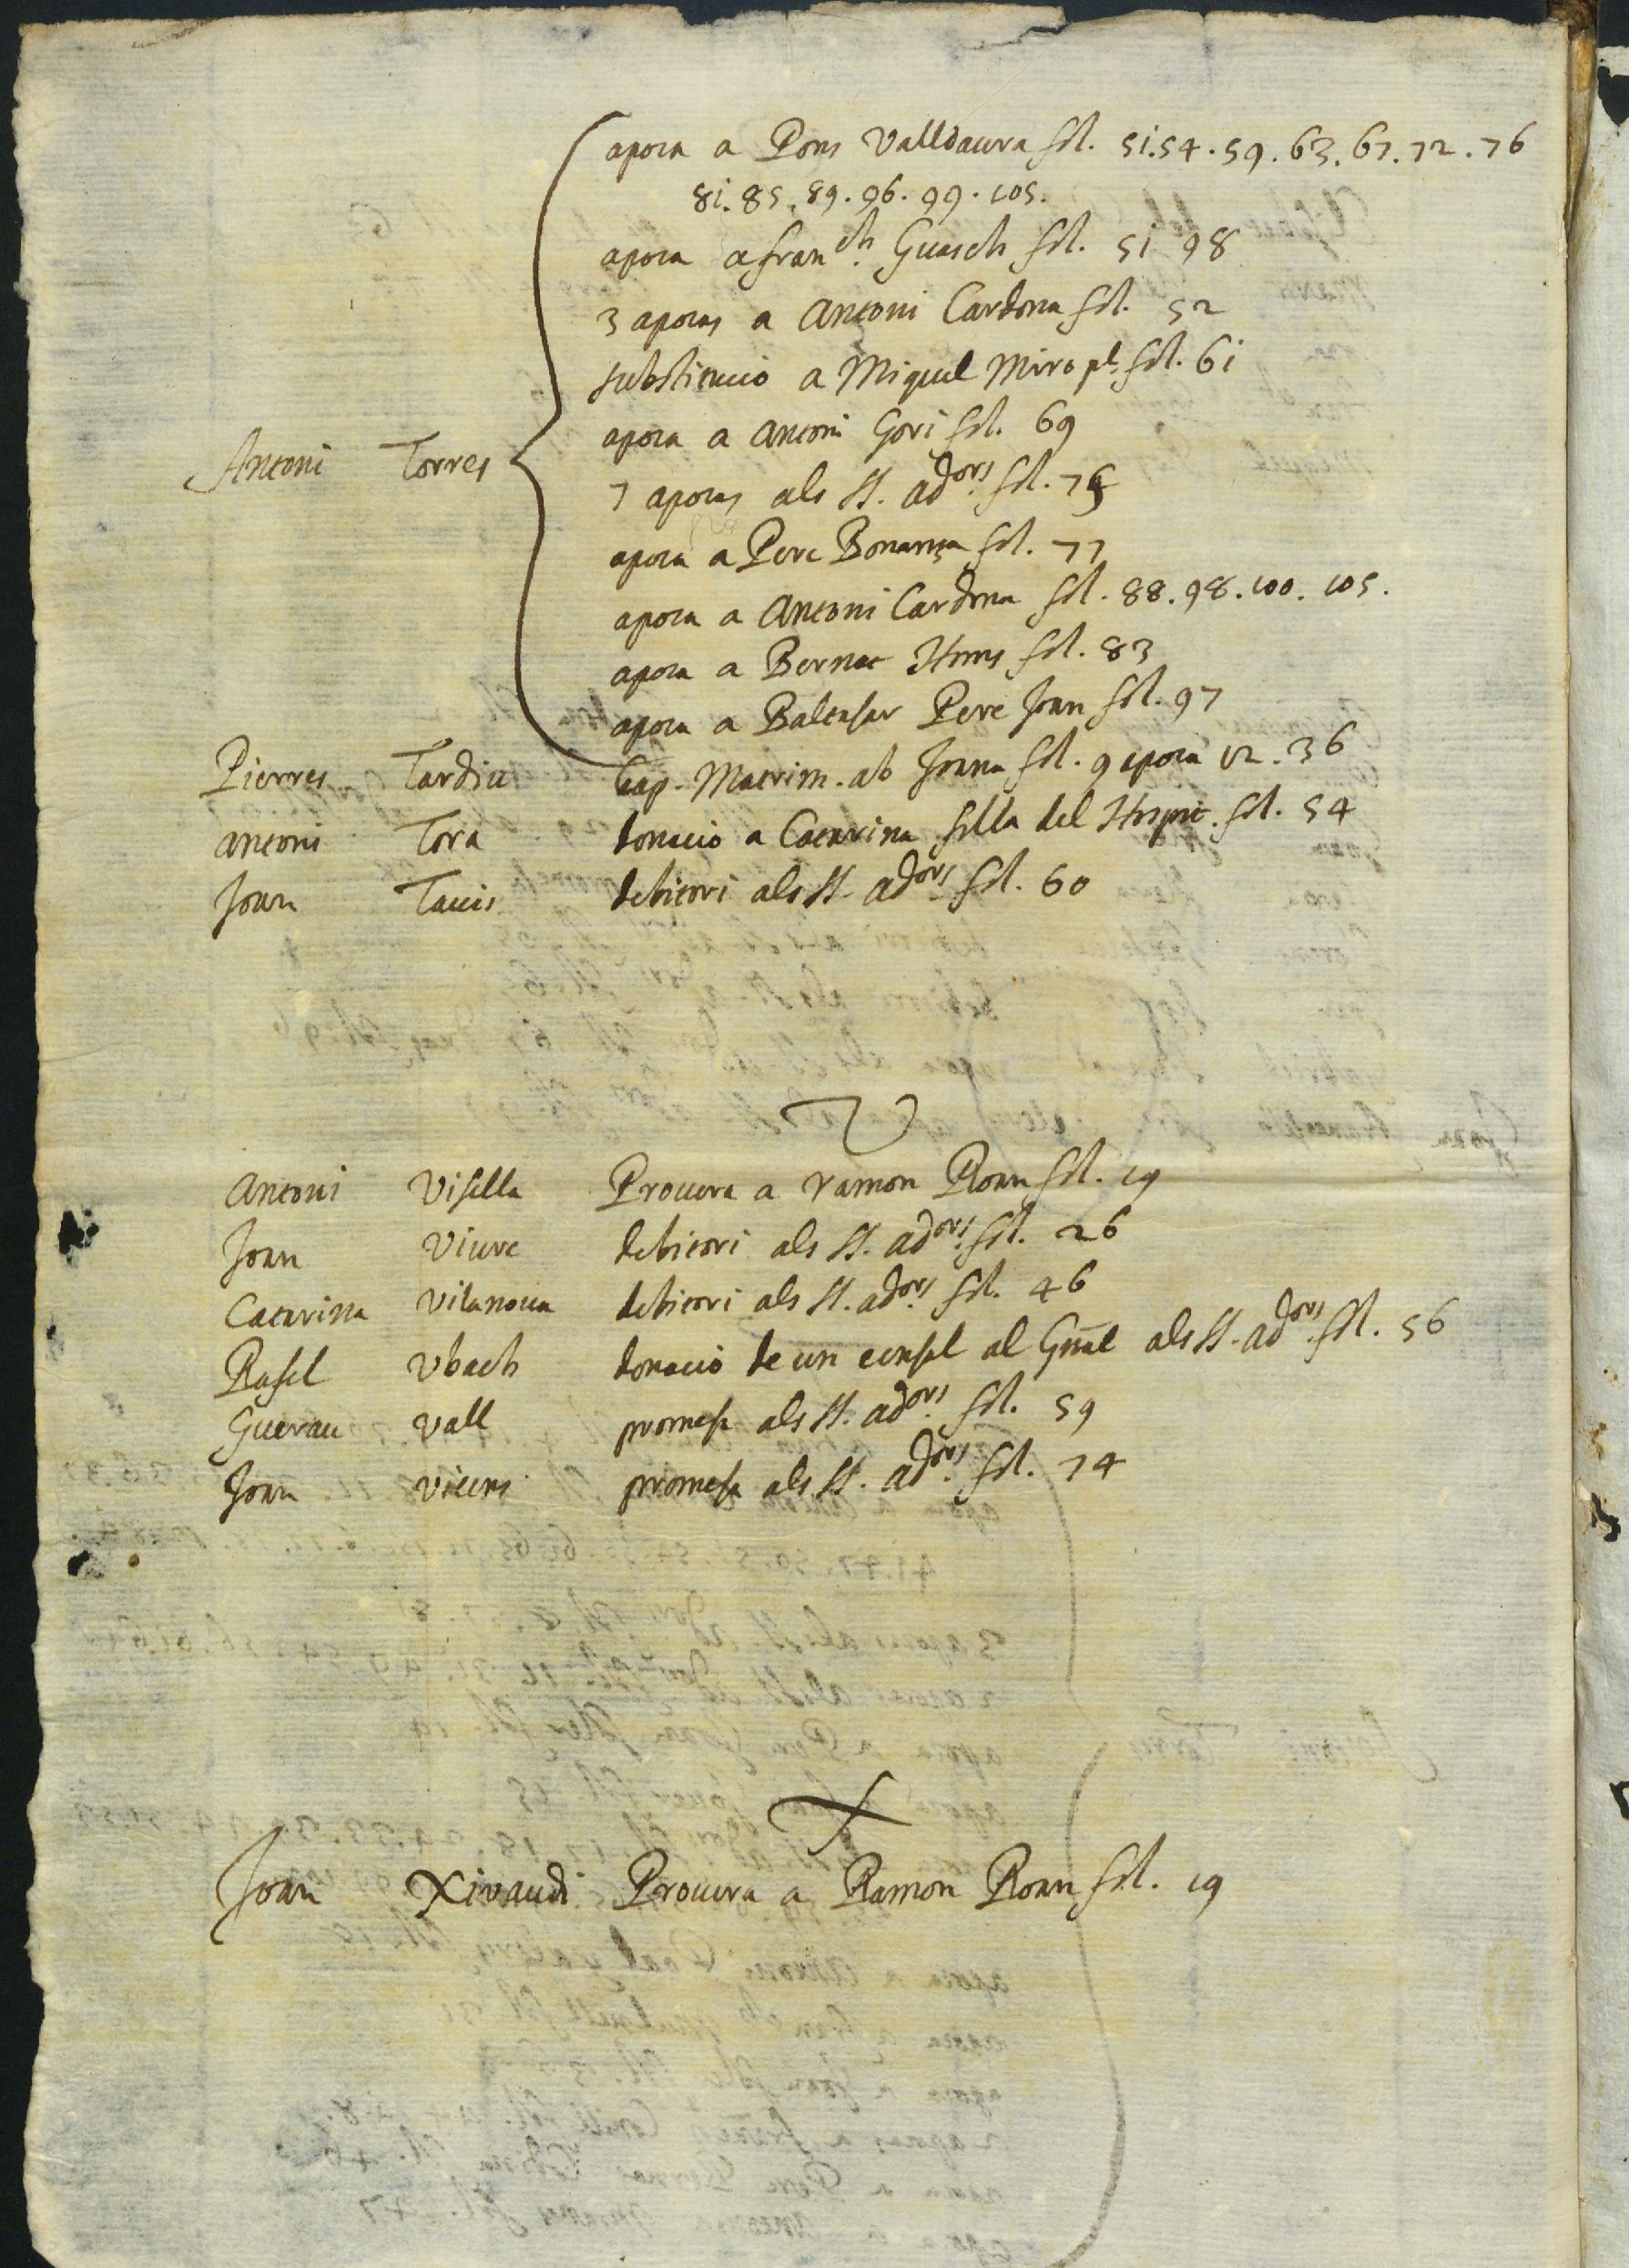 apoca a Pons Valldaura fol. 51.54.59.63.67.72.76
81.85.89.96.99.105.
apoca a franch. Guasch fol. 51 98
3 apocas a Antoni Cardona fol. 52
substitucio a Miquel Miro pt. fol. 61
apoca a Antoni Gori fol. 69
Antoni Torres
7 apocas als SS. adors. fol.
apoca a Pere Bonança fol. 77
apoca a Antoni Cardona fol. 88.98.100.105.
apoca a Bernat Homs fol. 83
apoca a Baltasar Pere Joan fol. 97
Pierres Tardiu Cap. Matrim. ab Joana fol. 9 apoca 12.36
Antoni Tora donacio a Catarina filla del Hospit. fol. 54
Joan Tauis debitori als SS. adors fol. 60
V
Antoni Visella Procura a ramon Roan fol. 19
Joan Viure debitori als SS. adors. fol. 26
Catarina Vilanova debitori als SS. adors. fol. 46
Rafel Vbach donacio de un censal al Gnal als SS. adors. fol. 56
Guerau Vall promesa als SS. adors. fol. 59
Joan Vicens promesa als SS. adors. fol. 74
X
Joan Xivaudi Procura a Ramon Roan fol. 19